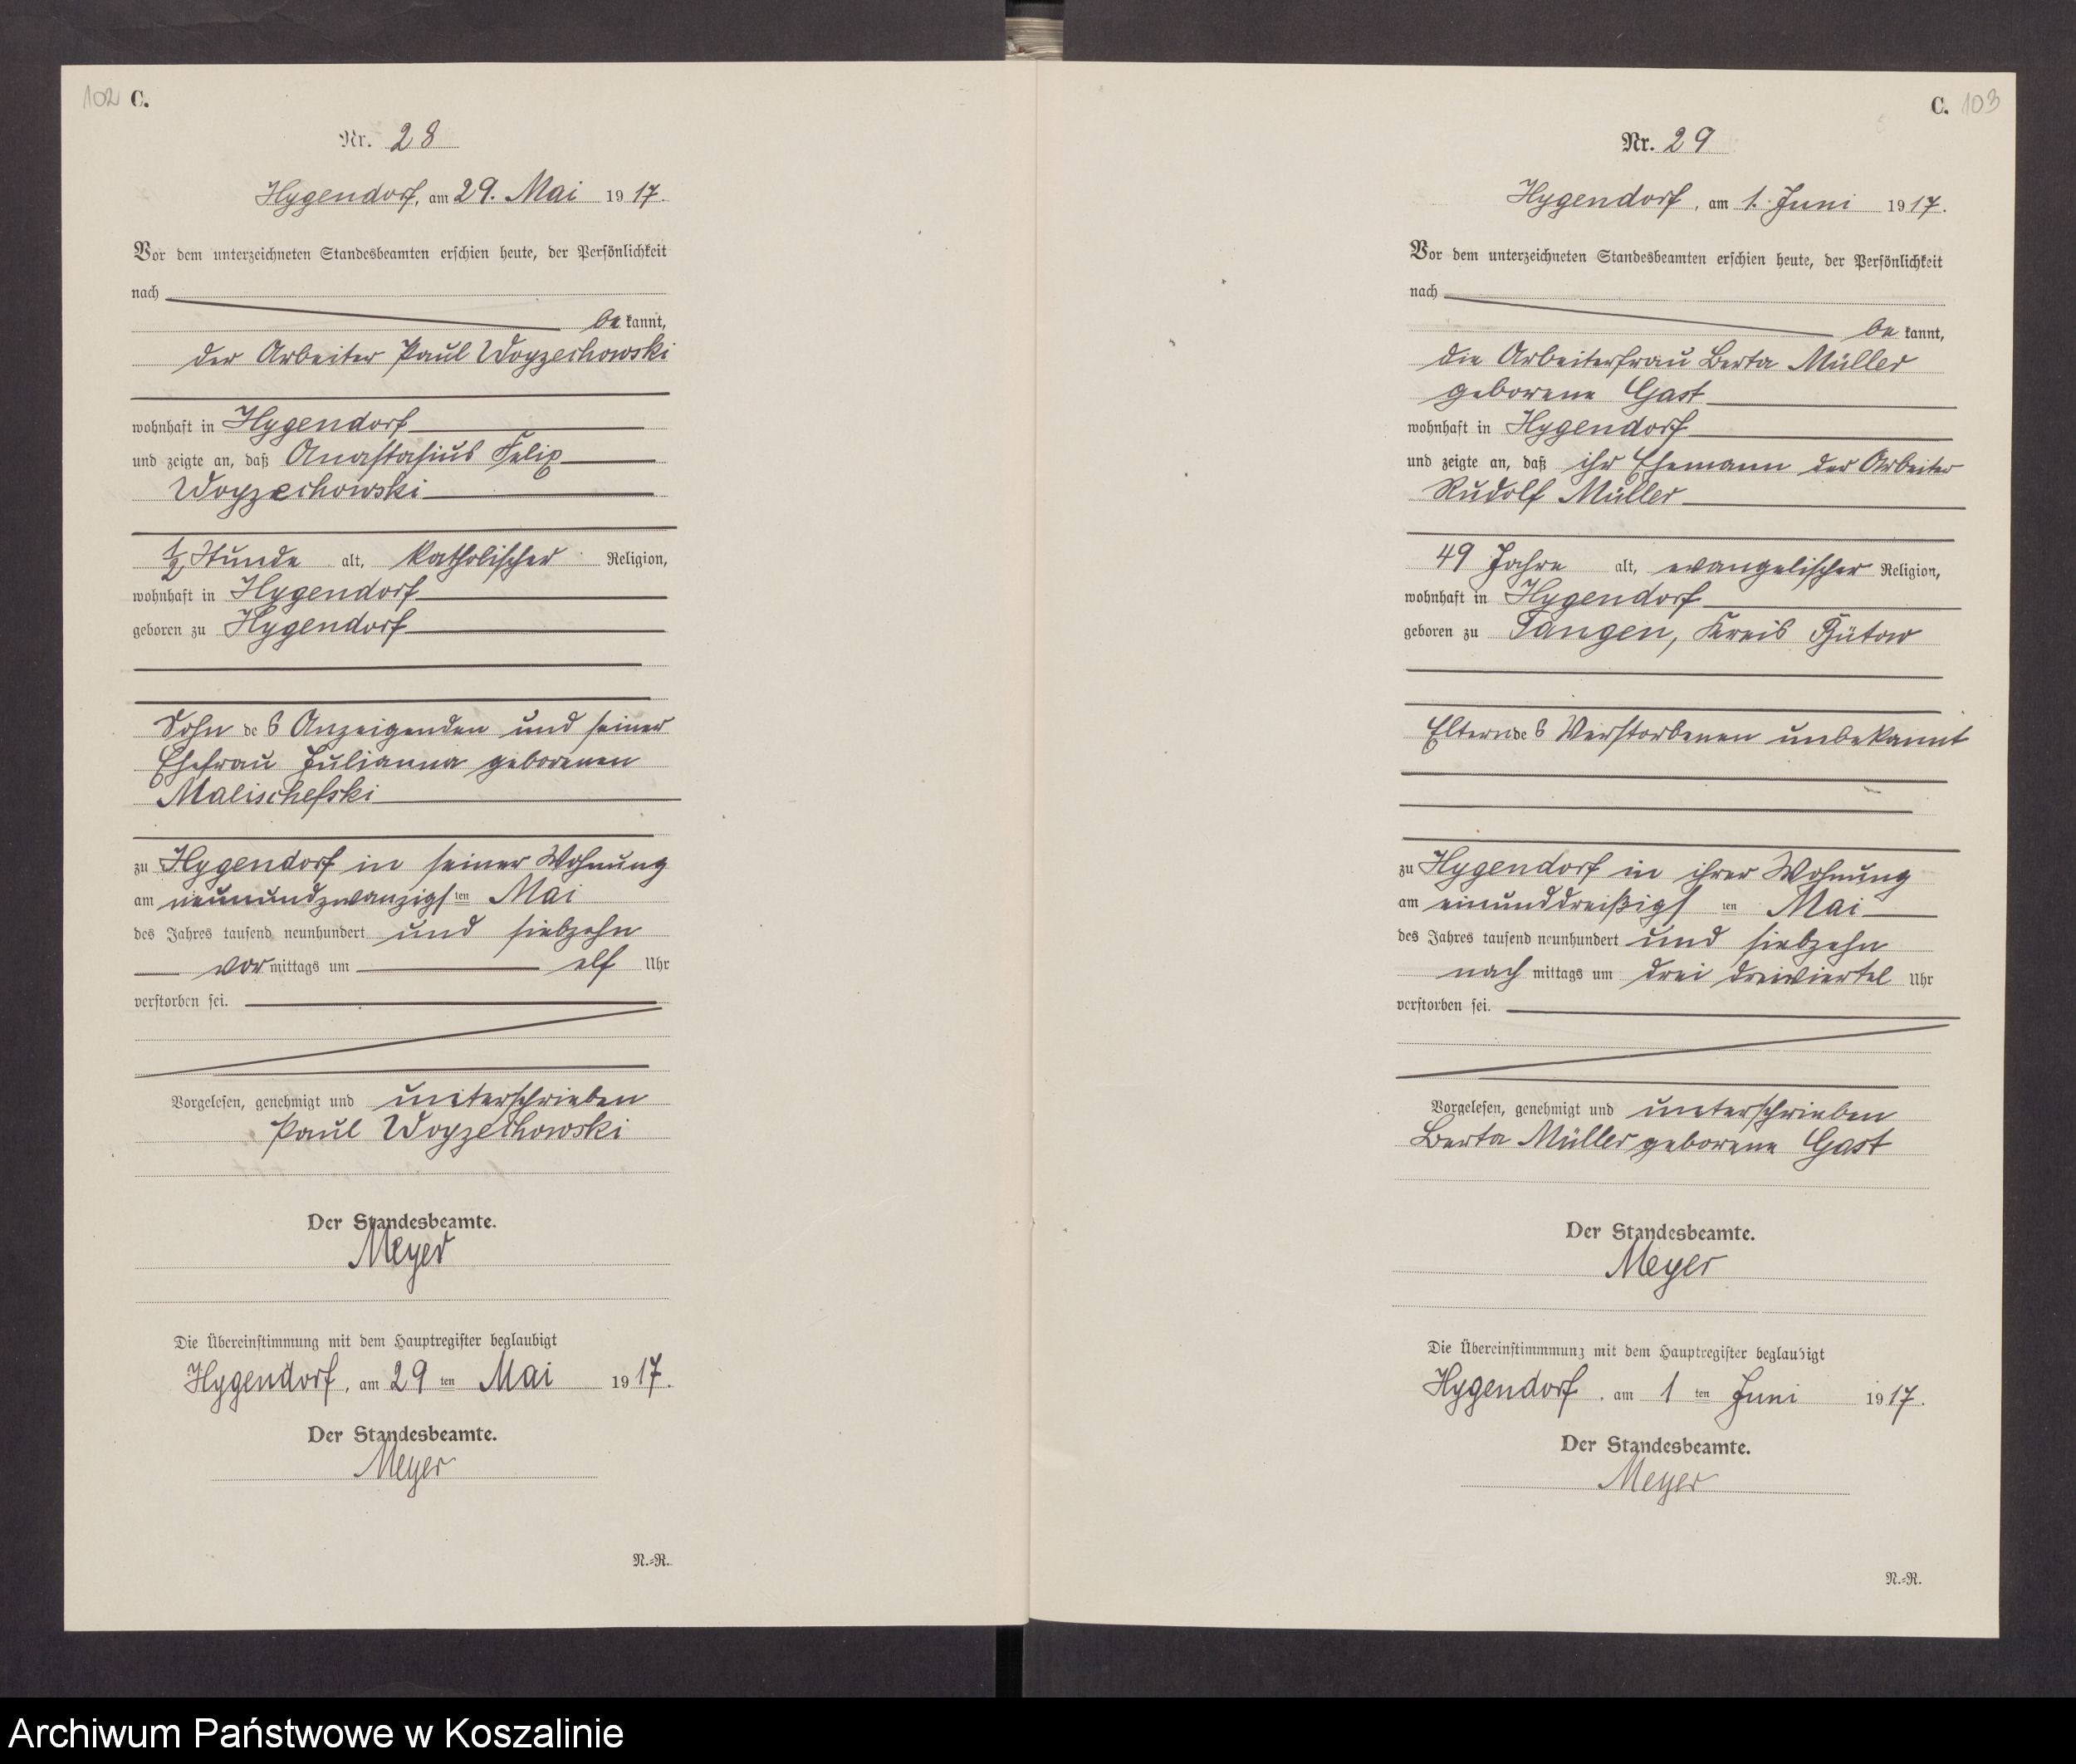 102 C.
Nr. 28
Hygendorf, am 29. Mai 1917.
Vor dem unterzeichneten Standesbeamten erschien heute, der Persönlichkeit
nach
be kannt,
der Arbeiter Paul Woyzechowski
wohnhaft in Hygendorf
und zeigte an, daß Anastasius Felix
Woyzechowski
1/2 Stunde alt, katholischer Religion,
wohnhaft in Hygendorf
geboren zu Hygendorf
Sohn des Anzeigenden und seiner
Ehefrau Julianna geborenen
Malischefski
zu Hygendorf in seiner Wohnung
am neunundzwanzigsten Mai
des Jahres tausend neunhundert und siebzehn
vormittags um elf Uhr
verstorben sei.
Vorgelesen, genehmigt und unterschrieben
Paul Woyzechowski
Der Standesbeamte.
Meyer
Die Übereinstimmung mit dem Hauptregister beglaubigt
Hygendorf, am 29 ten Mai 1917.
Der Standesbeamte.
Meyer
N.-R.
C. 103
Nr. 29
Hygendorf, am 1. Juni 1917.
Vor dem unterzeichneten Standesbeamten erschien heute, der Persönlichkeit
nach
be kannt,
die Arbeiterfrau Berta Müller
geborene Gast
wohnhaft in Hygendorf
und zeigte an, daß ihr Ehemann der Arbeiter
Rudolf Müller
49 Jahre alt, evangelischer Religion,
wohnhaft in Hygendorf
geboren zu Tangen, Kreis Bütow
Eltern des Verstorbenen unbekannt
zu Hygendorf in ihrer Wohnung
am einunddreißigsten Mai
des Jahres tausend neunhundert und siebzehn
nachmittags um drei dreiviertel Uhr
verstorben sei.
Vorgelesen, genehmigt und unterschrieben
Berta Müller geborene Gast
Der Standesbeamte.
Meyer
Die Übereinstimmung mit dem Hauptregister beglaubigt
Hygendorf, am 1 ten Juni 1917.
Der Standesbeamte.
Meyer
N.-R.
Archiwum Państwowe w Koszalinie